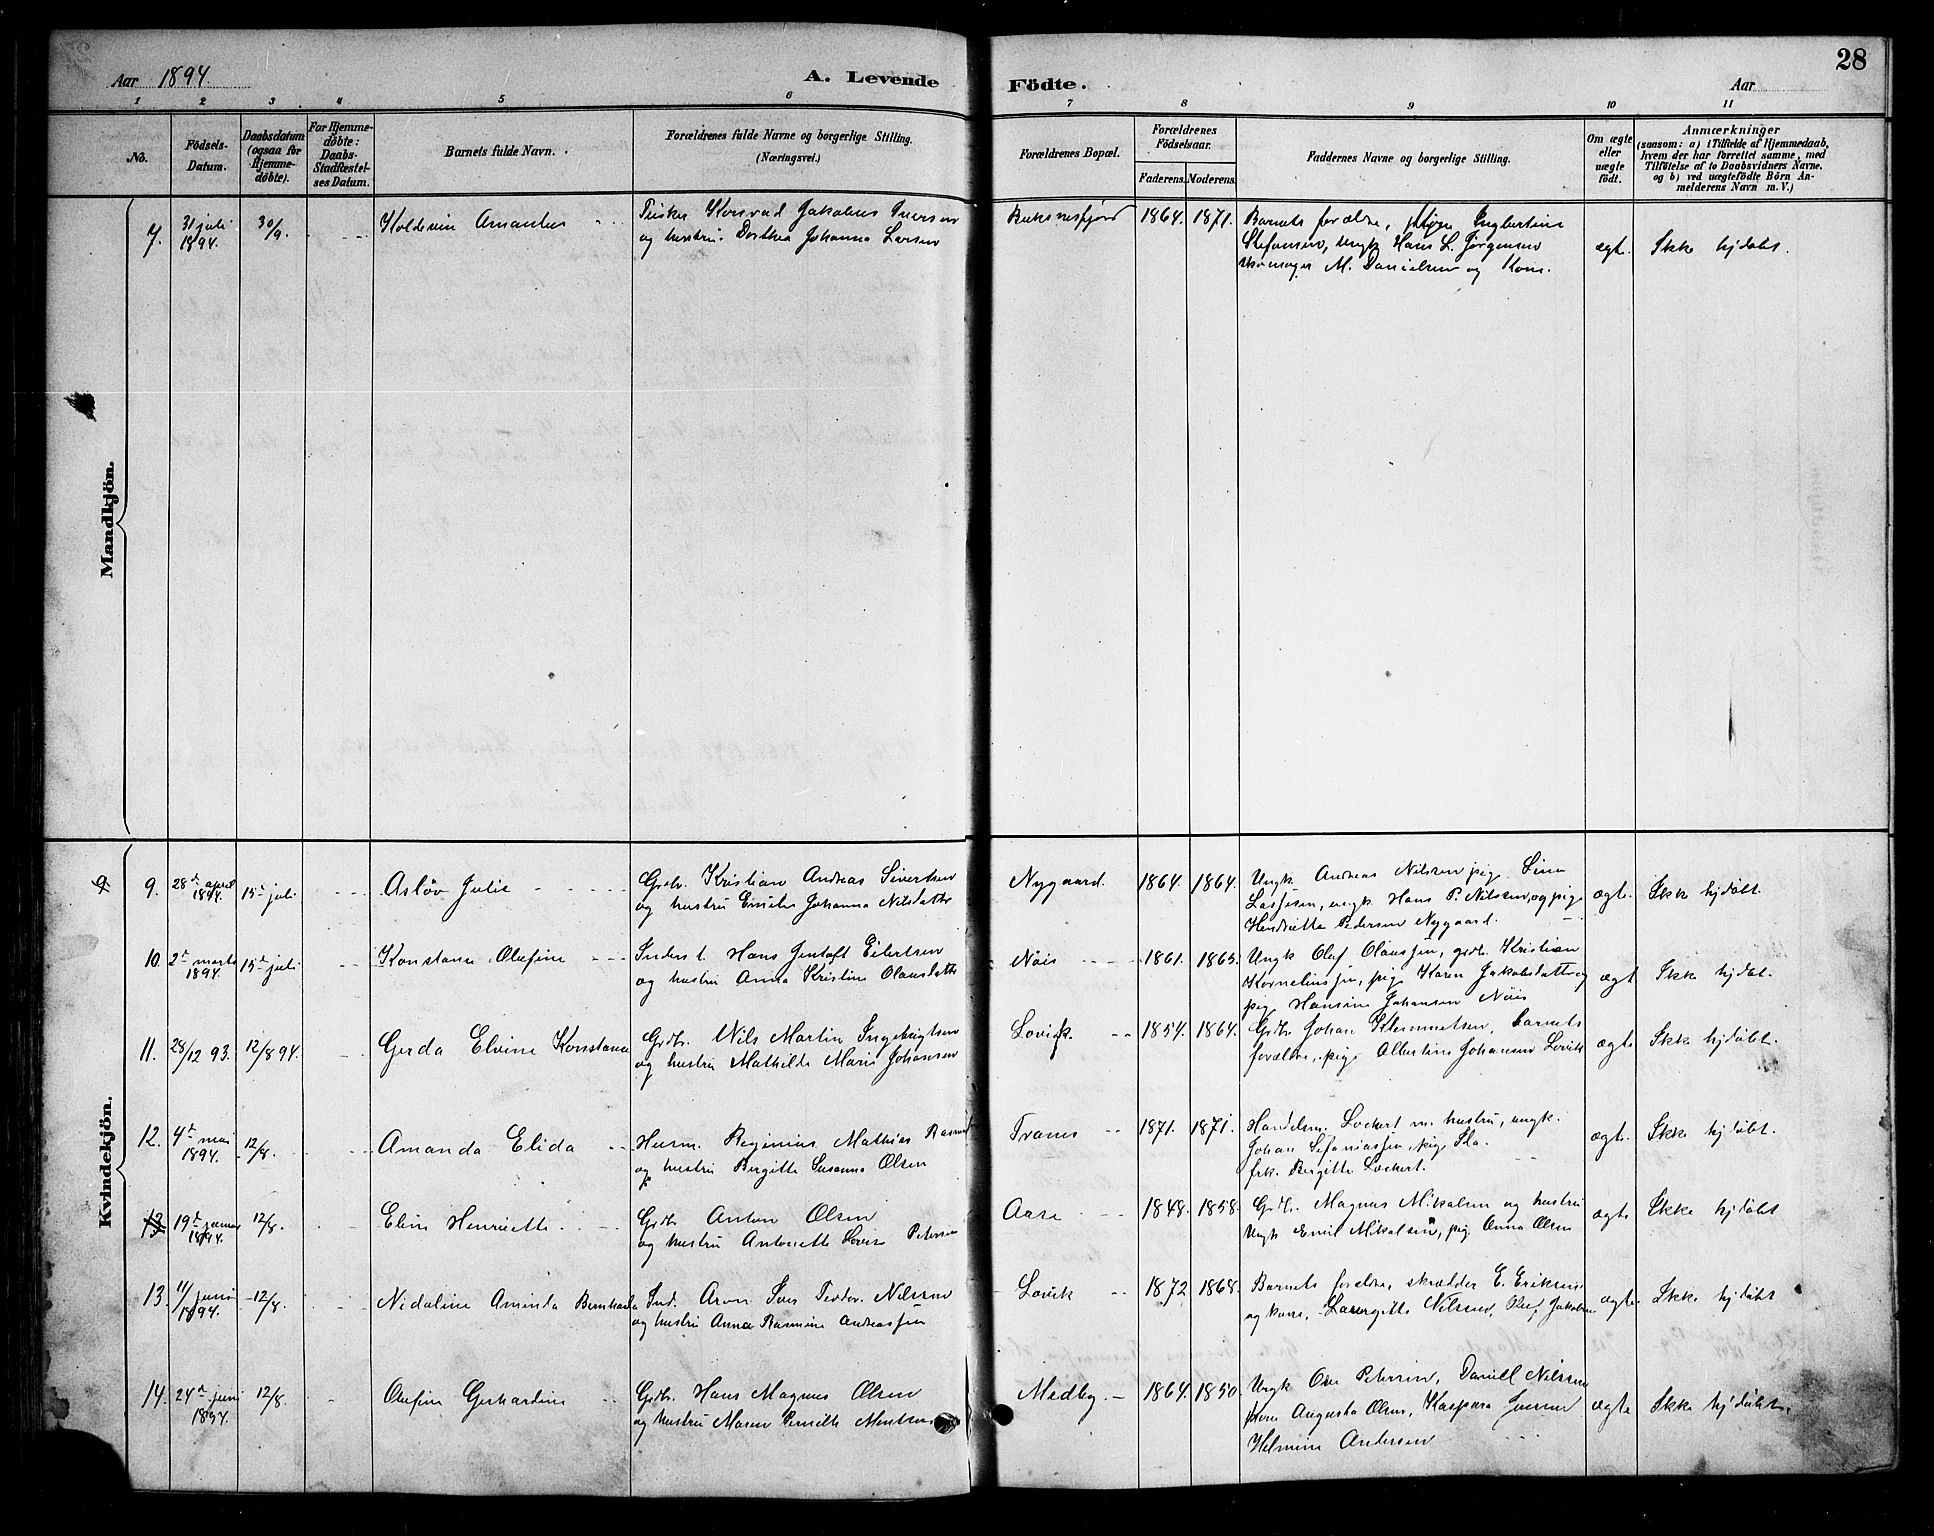 28
Aar 1894.
A. Levende
Födte.
Aar
1 2 3. 4 5 6 7 8 9 10 11
No.
Födsels-
Datum.
Daabsdatum
(ogsaa for
Hjemme-
døbte).
For Hjemme-
døbte:
Daabs-
Stadfæstel-
ses Datum.
Barnets fulde Navn.
Forældrenes fulde Navne og borgerlige Stilling.
(Næringsvei.)
Forældrenes Bopæl.
Forældrenes
Födselsaar.
Faderens. Moderens.
Faddernes Navne og borgerlige Stilling.
Om ægte
eller
uægte
födt.
Anmærkninger
(saasom: a) i Tilfælde af Hjemmedaab,
hvem der har forrettet samme, med
Tilföielse af to Daabsvidners Navne,
og b) ved uægtefödte Börn An-
melderens Navn m. V.)
Mandkjön.
7.
31 juli
1894.
30/9.
Amandus
Fisker Konrad Jakobus Iversen
og hustru Dorthea Johanna Larsen
Buksnesfjord
1864. 1871.
Barnets forældre, pige Englertine
Stefansen, ungk Hans L. Jørgensen
skomager M. Danielsen og Kone.
ægte.
Ikke hjdøbt.
Kvindekjön.
9 9.
28de april
1894.
15de juli
Asløv Julie
Grdbr. Kristian Andreas Sivertsen
og hustru Emilie Johanna Nilsdatter
Nygaard.
1864. 1864.
Ungk Andreas Nilsen, pige Lina
Lassesen, ungk Hans P. Nilsen, og pige
Henriette Pedersen Nygaard.
ægte.
Ikke hjdøbt
10.
2de marts
1894.
15de juli
Konstanse Olufine
Inderst Hans Gentoft Eilertsen
og hustru Anna Kristine Olausdatter
Nöis
1861. 1865.
Ungk Oluf Olaussen, grdb. Kristian
Korneliussen, pige Karen Jakobsdatter og
pige Hansine Johansen Nöis
ægte
Ikke hjdøbt.
11.
28/12 93.
12/8 94.
Gerda Elvine Konstanse
Grdbr. Nils Martin Ingebrigtsen
og hustru Mathilde Marie Johansen
Lovik.
1854. 1864.
Grdbr. Johan Klemmetsen, barnets
forældre, pige Albertine Johansen Lovik
ægte
Ikke hjdøbt.
12.
4de mai
1894.
12/8.
Amanda Elida
Husm. Reginius Mathias Rasmus
og hustru Bergitte Susanna Olsen
Tranes
1871. 1871.
Handelsm. Lockert m. hustru, ungk.
Johan Sefaniassen, pige Ida
frk. Bergitte Lockert.
ægte.
Ikke hjdøbt.
13
19de januar
1894.
12/8.
Eline Henriette
Grdbr Anton Olsen
og hustru Antonette Lovise Petersen
Aase
1848. 1858.
Grdbr. Magnus Mikalsen og hustru
Ungk Emil Mikalsen, pige Anna Olsen
ægte
Ikke hjdøbt
13.
11/ juni
1894.
12/8.
Nidaline Aminda Bernharda
Ind. Aron Sver Teodor Nilssen
og hustru Anna Rasmine Andreassen
Lovik
1872 1868.
Barnets forældre, skrædder E. Eriksen
og kone, Lauergitte Nilssen, Oluf Jakobsen
ægte.
Ikke hjdøbt
14.
24de juni
1894.
12/8.
Olufine Gerhardine
Grdbr. Hans Magnus Olsen
og hustru Maren Pernille
Medby.
1864. 1850.
Ungk Ove Petersen, Daniel Nilssen
pigerne Augusta Olsen, Kaspara Iversen
Helmine Andersen
ægte
Ikke hjdøbt.